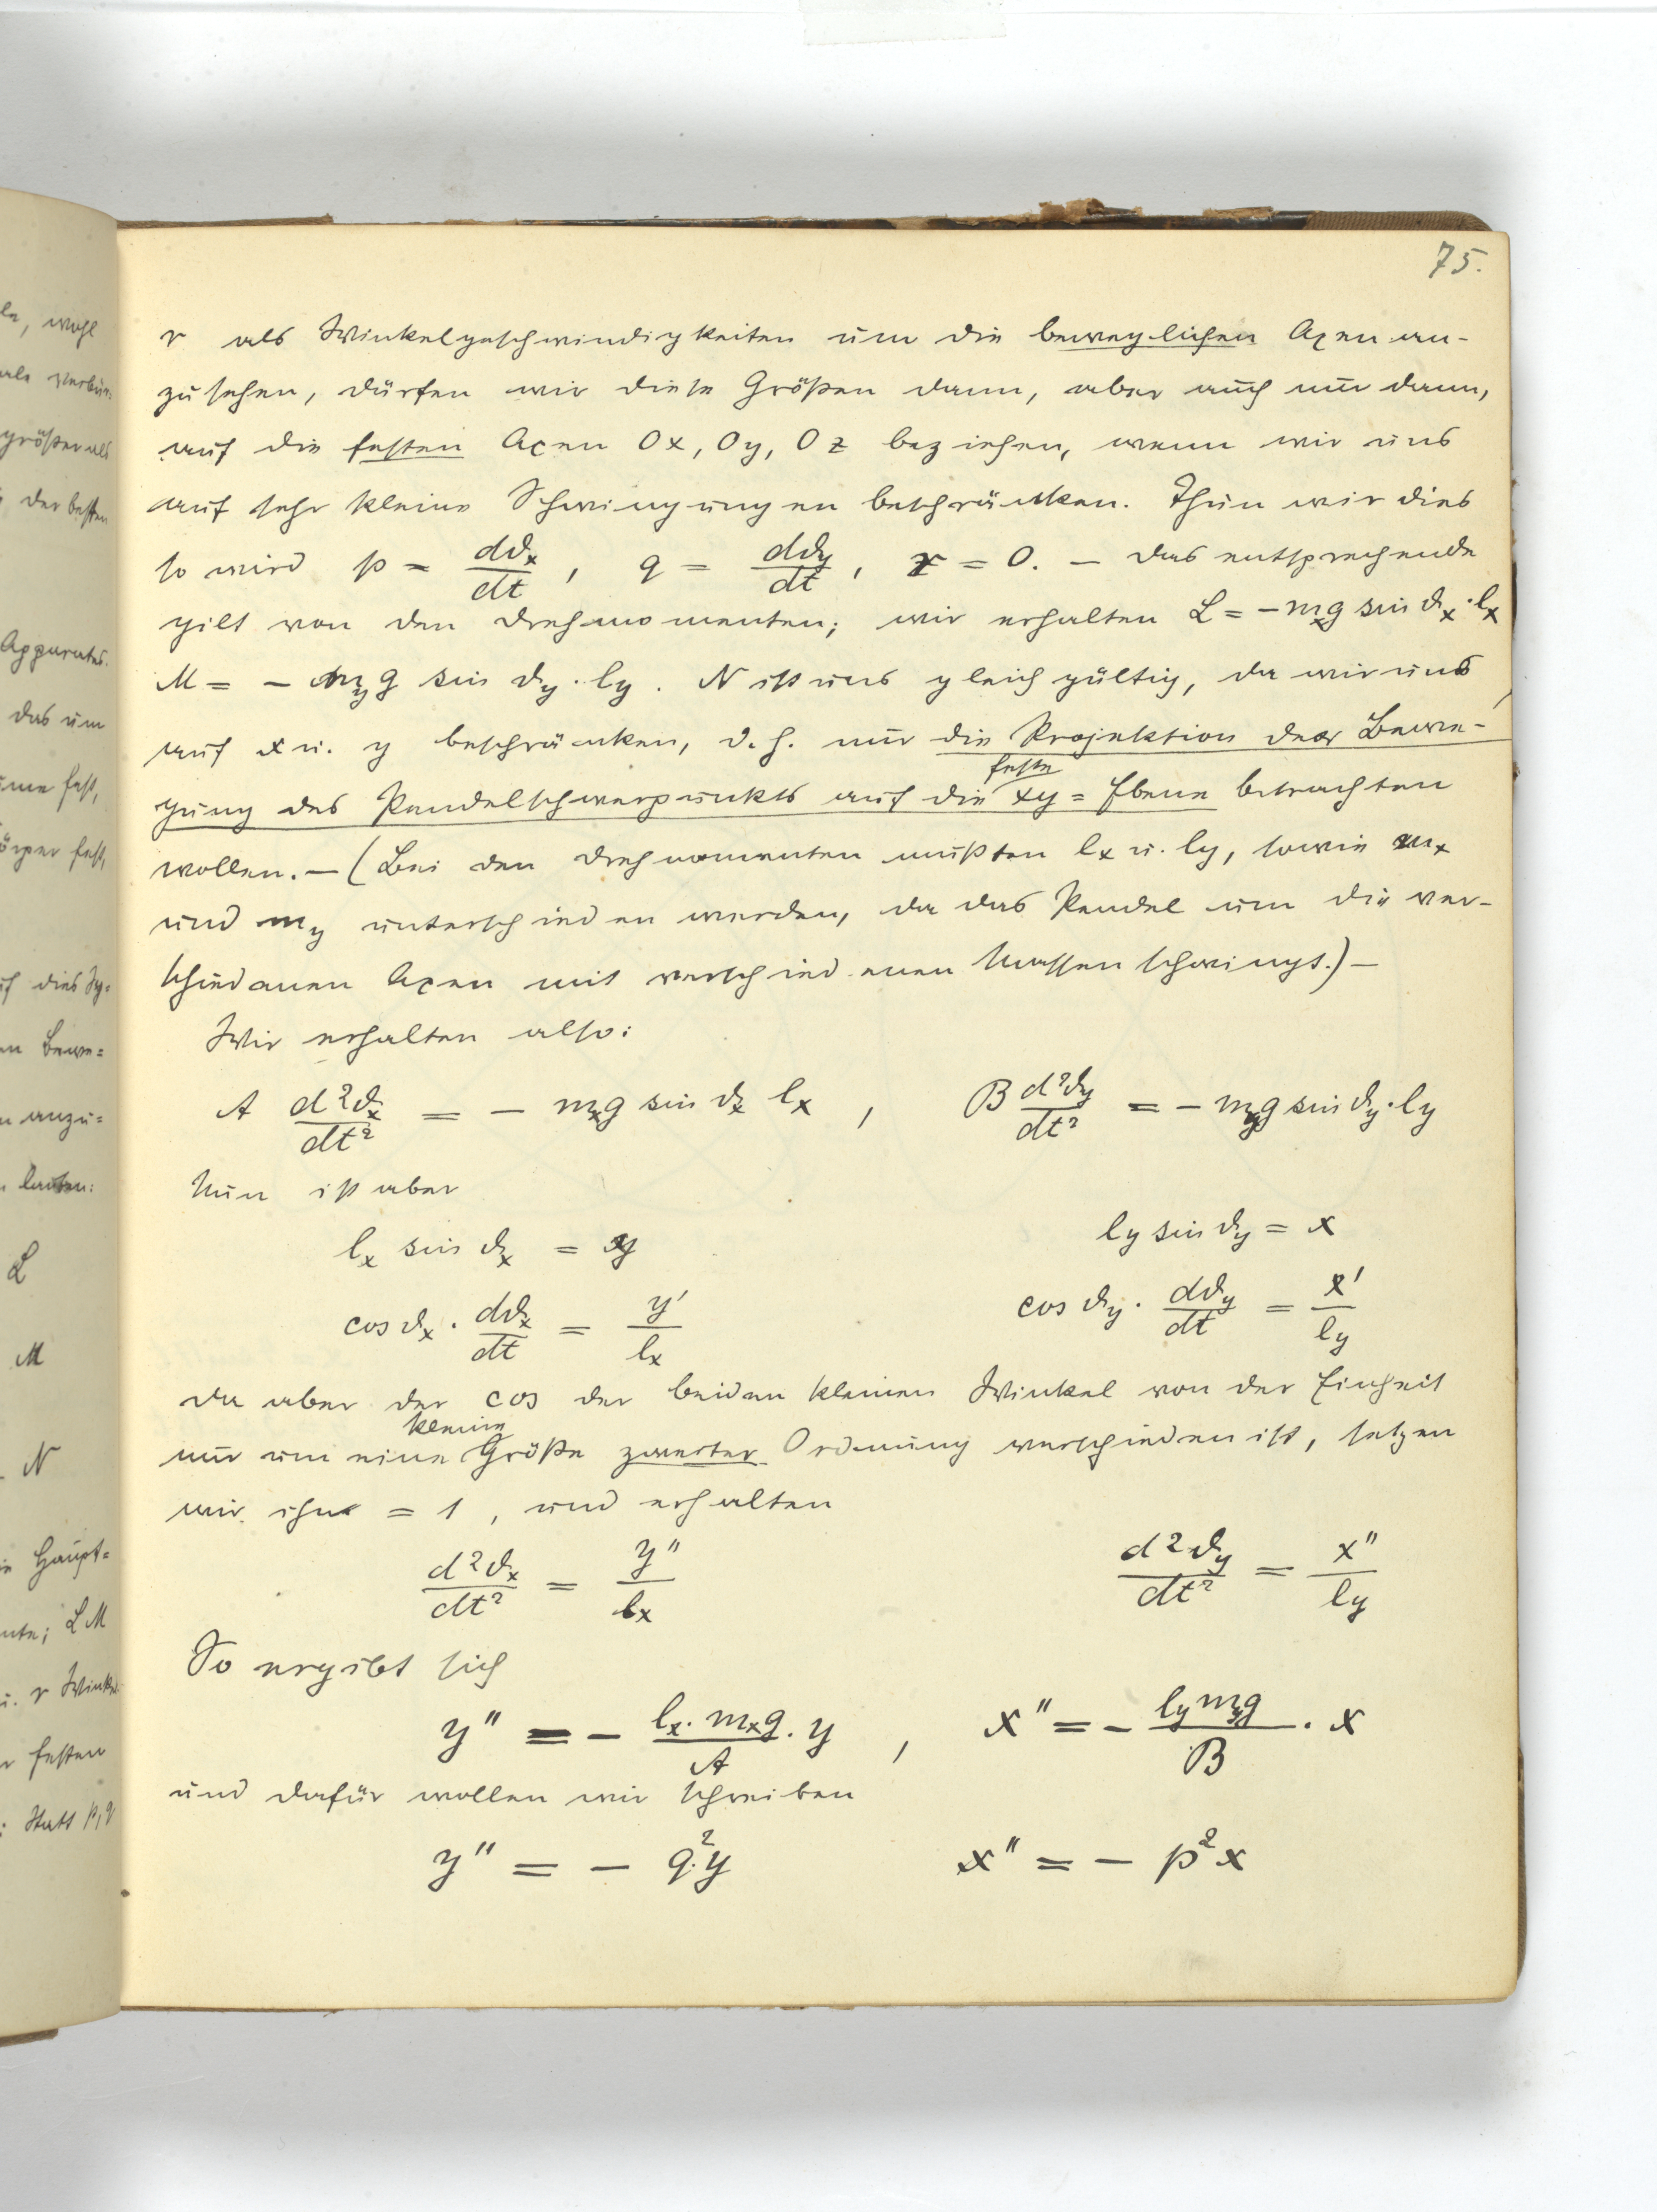 75.
r als Winkelgeschwindigkeiten um die beweglichen Axen an-
zusehen, dürfen wir diese Größen dann, aber auch nur dann,
auf die festen Axen Ox, Oy, Oz beziehen, wenn wir uns
auf sehr kleine Schwingungen beschränken. Thun wir dies
so wird p = dϑx/dt, q = dϑy/dt, r = 0. — Das entsprechende
gilt von den Drehmomenten; wir erhalten L = − mxg sin ϑx · lx
M = − myg sin ϑy · ly. N ist uns gleichgültig, da wir uns,
auf x u. y beschränken, d. h. nur die Projektion der Bewe-
feste
gung des Pendelschwerpunkts auf die xy = Ebene betrachten
wollen. — (Bei den Drehmomenten mußten lx u. ly, sowie mx
und my unterschieden werden, da das Pendel um die ver-
schiedenen Axen mit verschiedenen Massen schwingt.) —
Wir erhalten also:
A d²ϑx/dt² = − mxg sin ϑx lx , B d²ϑy/dt² = − myg sin ϑy · ly
Nun ist aber
lx sin ϑx = y ly sin ϑy = x
cos ϑx · dϑx/dt = y'/lx cos ϑy · dϑy/dt = x'/ly
Da aber der cos der beiden kleinen Winkel von der Einheit
kleine
nur um eine Größe zweiter Ordnung verschieden ist, setzen
wir ihn = 1, und erhalten
d²ϑx/dt² = y''/lx d²ϑy/dt² = x''/ly
So ergibt sich
y'' = − lx · mxg/A · y , x'' = − ly myg/B · x
und dafür wollen wir schreiben
y'' = − q² y x'' = − p² x